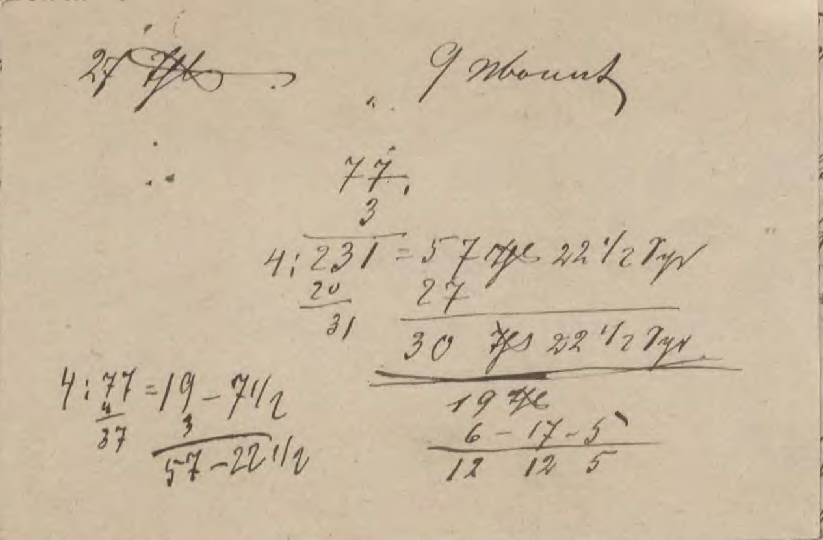 27 Thl 9 Monat
77
3
4 : 231 = 57 Thl 22 1/2 Sgr
20 27
31
30 Thl 22 1/2 Sgr
19 Thl
4 : 77 = 19 - 7 1/2
4 3 6 - 17 - 5
37
57 - 22 1/2 12 12 5